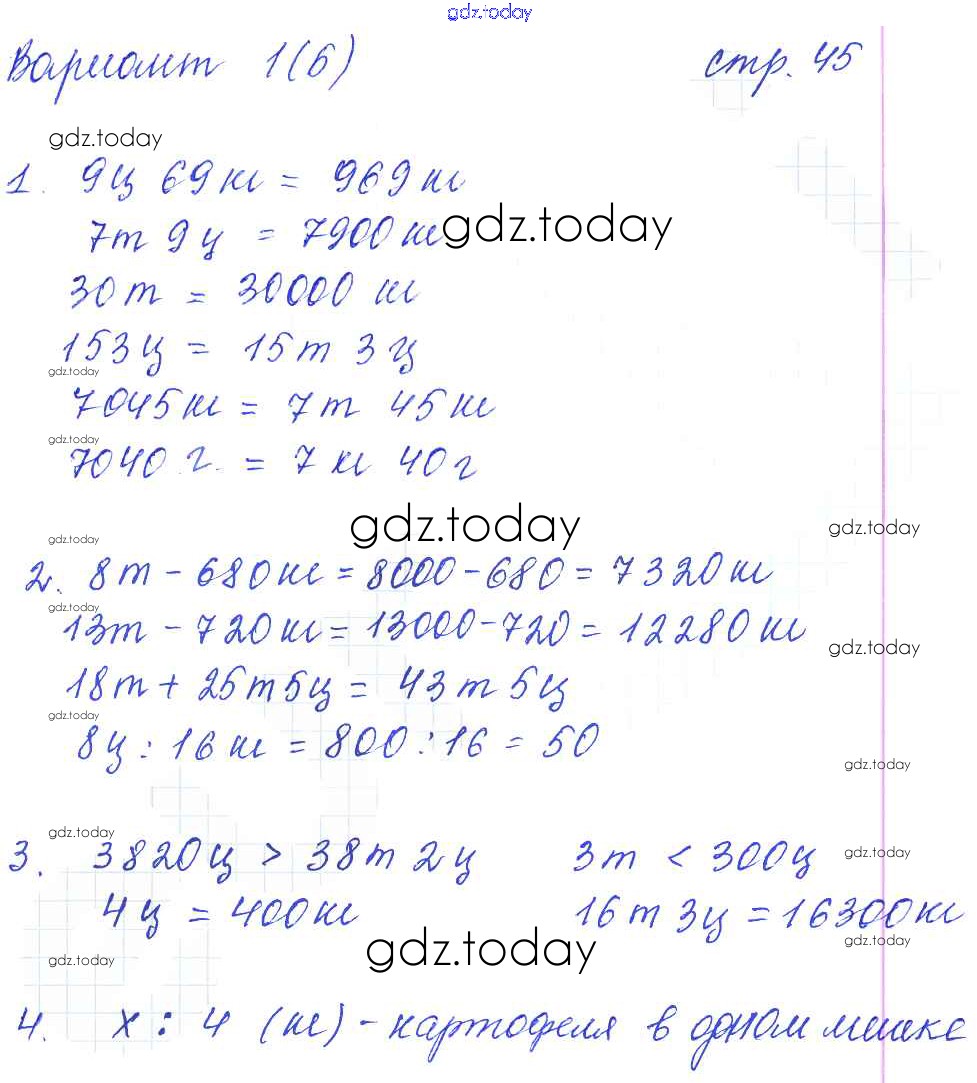 gdz.today
Вариант 1(6) стр. 45
gdz.today
1. 9ц 69кг = 969кг
7т 9ц = 7900кг gdz.today
30т = 30000 кг
153ц = 15т 3ц
gdz.today
7045кг = 7т 45кг
gdz.today
7040 г. = 7 кг 40г
gdz.today gdz.today
gdz.today
2. 8т - 680кг = 8000 - 680 = 7320кг
gdz.today
13т - 720кг = 13000 - 720 = 12280кг
gdz.today
18т + 25т5ц = 43т5ц
gdz.today
8ц : 16кг = 800 : 16 = 50
gdz.today
gdz.today
3. 3820ц > 38т 2ц 3т < 300ц gdz.today
4ц = 400кг 16т 3ц = 16300кг
gdz.today gdz.today
gdz.today
4. х : 4 (кг) - картофеля в одном мешке